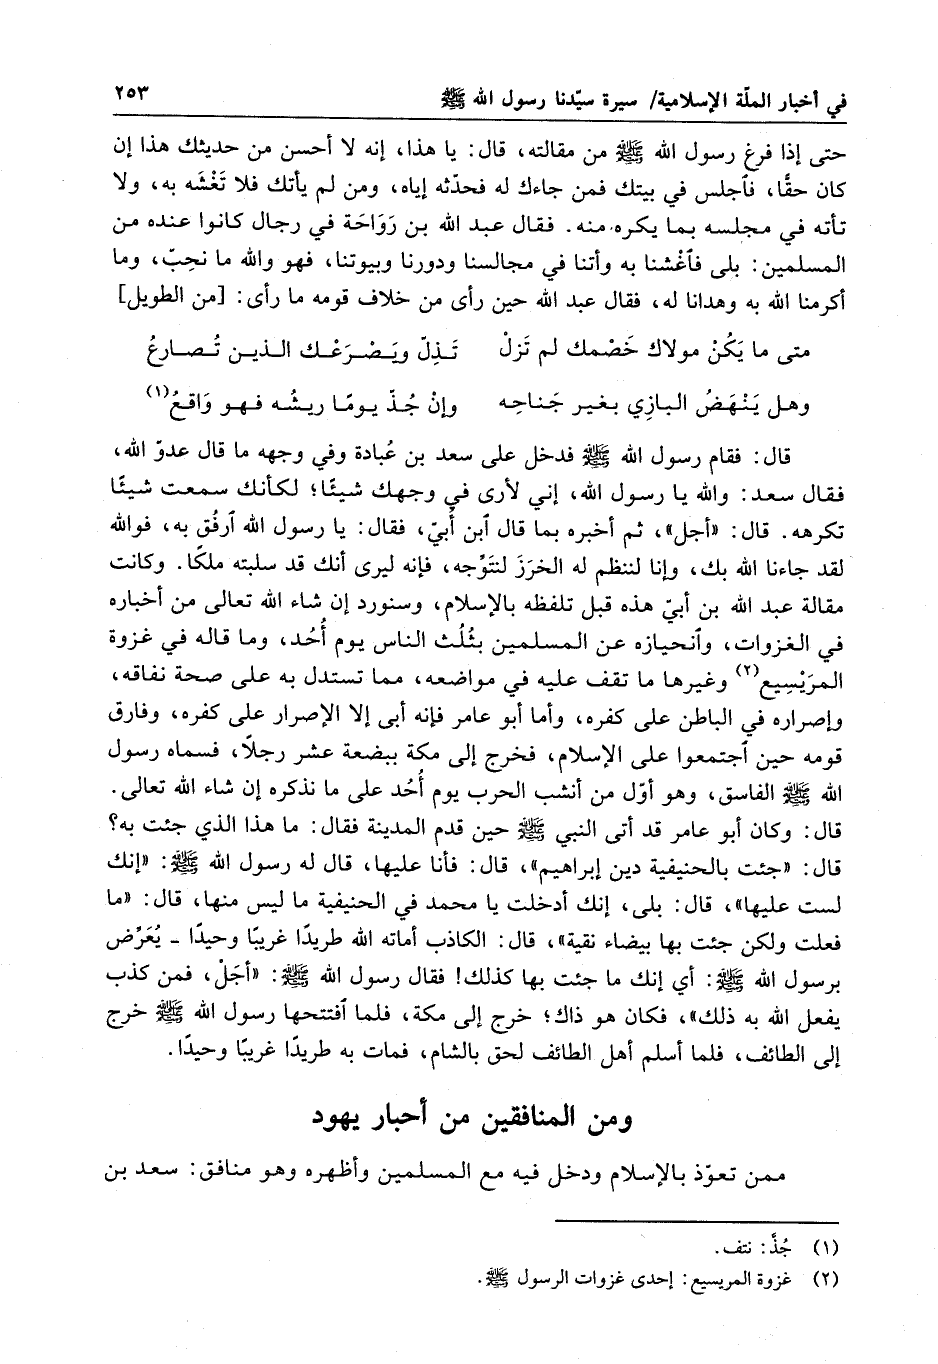 في أخبار الملّة الإسلامية/ سيرة سيّدنا رسول الله ﷺ ٢٥٣
حتى إذا فرغ رسول الله ﷺ من مقالته، قال: يا هذا، إنه لا أحسن من حديثك هذا إن
كان حقًّا، فٱجلس في بيتك فمن جاءك له فحدّثه إياه، ومن لم يأتك فلا تَغْشَه به، ولا
تأته في مجلسه بما يكره منه. فقال عبد الله بن رَوَاحَة في رجال كانوا عنده من
المسلمين: بلى فٱغْشنا به وأتنا في مجالسنا ودورنا وبيوتنا، فهو والله ما نحِبّ، وما
أكرمنا الله به وهدانا له، فقال عبد الله حين رأى من خلاف قومه ما رأى: [من الطويل]
متى ما يَكُنْ مولاك خَصْمك لم تَزلْ تَذِلّ ويَصْرَعْك الذين تُصارعُ
وهل يَنْهَضُ البازِي بغير جَناحِه وإنْ جُذّ يومًا ريشُه فهو وَاقعُ(١)
قال: فقام رسول الله ﷺ فدخل على سعد بن عُبادة وفي وجهه ما قال عدوّ الله،
فقال سعد: والله يا رسول الله، إني لأرى في وجهك شيئًا؛ لكأنك سمعت شيئًا
تكرهه. قال: «أجل»، ثم أخبره بما قال ٱبن أُبيّ، فقال: يا رسول الله ٱرفُق به، فوالله
لقد جاءنا الله بك، وإنا لننظم له الخرَزَ لنتَوِّجه، فإنه ليرى أنك قد سلبته ملكًا. وكانت
مقالة عبد الله بن أبيّ هذه قبل تلفظه بالإسلام، وسنورد إن شاء الله تعالى من أخباره
في الغزوات، وٱنحيازه عن المسلمين بثُلُث الناس يوم أُحُد، وما قاله في غزوة
المرَيْسِيع(٢) وغيرها ما تقف عليه في مواضعه، مما تستدل به على صحة نفاقه،
وإصراره في الباطن على كفره، وأما أبو عامر فإنه أبى إلا الإصرار على كفره، وفارق
قومه حين ٱجتمعوا على الإسلام، فخرج إلى مكة ببضعة عشر رجلًا، فسماه رسول
الله ﷺ الفاسق، وهو أوّل من أنشب الحرب يوم أُحُد على ما نذكره إن شاء الله تعالى.
قال: وكان أبو عامر قد أتى النبي ﷺ حين قدم المدينة فقال: ما هذا الذي جئت به؟
قال: «جئت بالحنيفية دين إبراهيم»، قال: فأنا عليها، قال له رسول الله ﷺ: «إنك
لست عليها»، قال: بلى، إنك أدخلت يا محمد في الحنيفية ما ليس منها، قال: «ما
فعلت ولكن جئت بها بيضاء نقية»، قال: الكاذب أماته الله طريدًا غريبًا وحيدًا - يُعَرِّض
برسول الله ﷺ: أي إنك ما جئت بها كذلك! فقال رسول الله ﷺ: «أجَلْ، فمن كذب
يفعل الله به ذلك»، فكان هو ذاك؛ خرج إلى مكة، فلما ٱفتتحها رسول الله ﷺ خرج
إلى الطائف، فلما أسلم أهل الطائف لحق بالشام، فمات به طريدًا غريبًا وحيدًا.
ومن المنافقين من أحبار يهود
ممن تعوّذ بالإسلام ودخل فيه مع المسلمين وأظهره وهو منافق: سعد بن
(١) جُذَّ: نتف.
(٢) غزوة المريسيع: إحدى غزوات الرسول ﷺ.